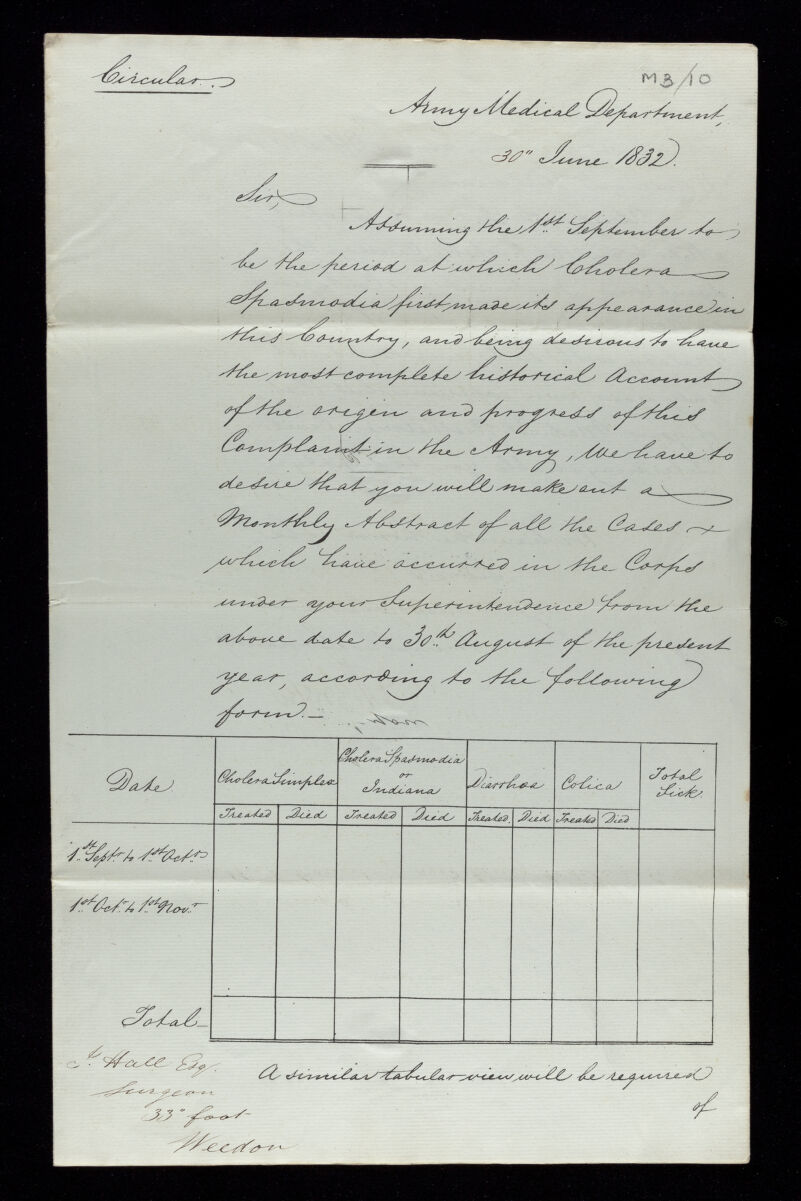 Circular.
M3/10
Army Medical Department,
30" June 1832.
Sir,
Assuming the 1st. September to
be the period at which Cholera
Spasmodia first made its appearance in
this Country, and being desirous to have
the most complete historical Account
of the origin and progress of this
Complaint in the Army, We have to
desire that you will make out a
Monthly Abstract of all the Cases
which have occurred in the Corps
under your Superintendence from the
above date to 30th. August of the present
year, according to the following
form.—
Date
Cholera Simplex
Cholera Spasmodia
or
Indiana
Diarrhœa
Colica
Total
Sick
Treated Died Treated Died Treated Died Treated Died
1st. Septr. to 1st. Octr.
1st. Octr. to 1st. Novr.
Total
Hall Esqr.
Surgeon
33" foot
Weedon
A similar tabular view will be required
of